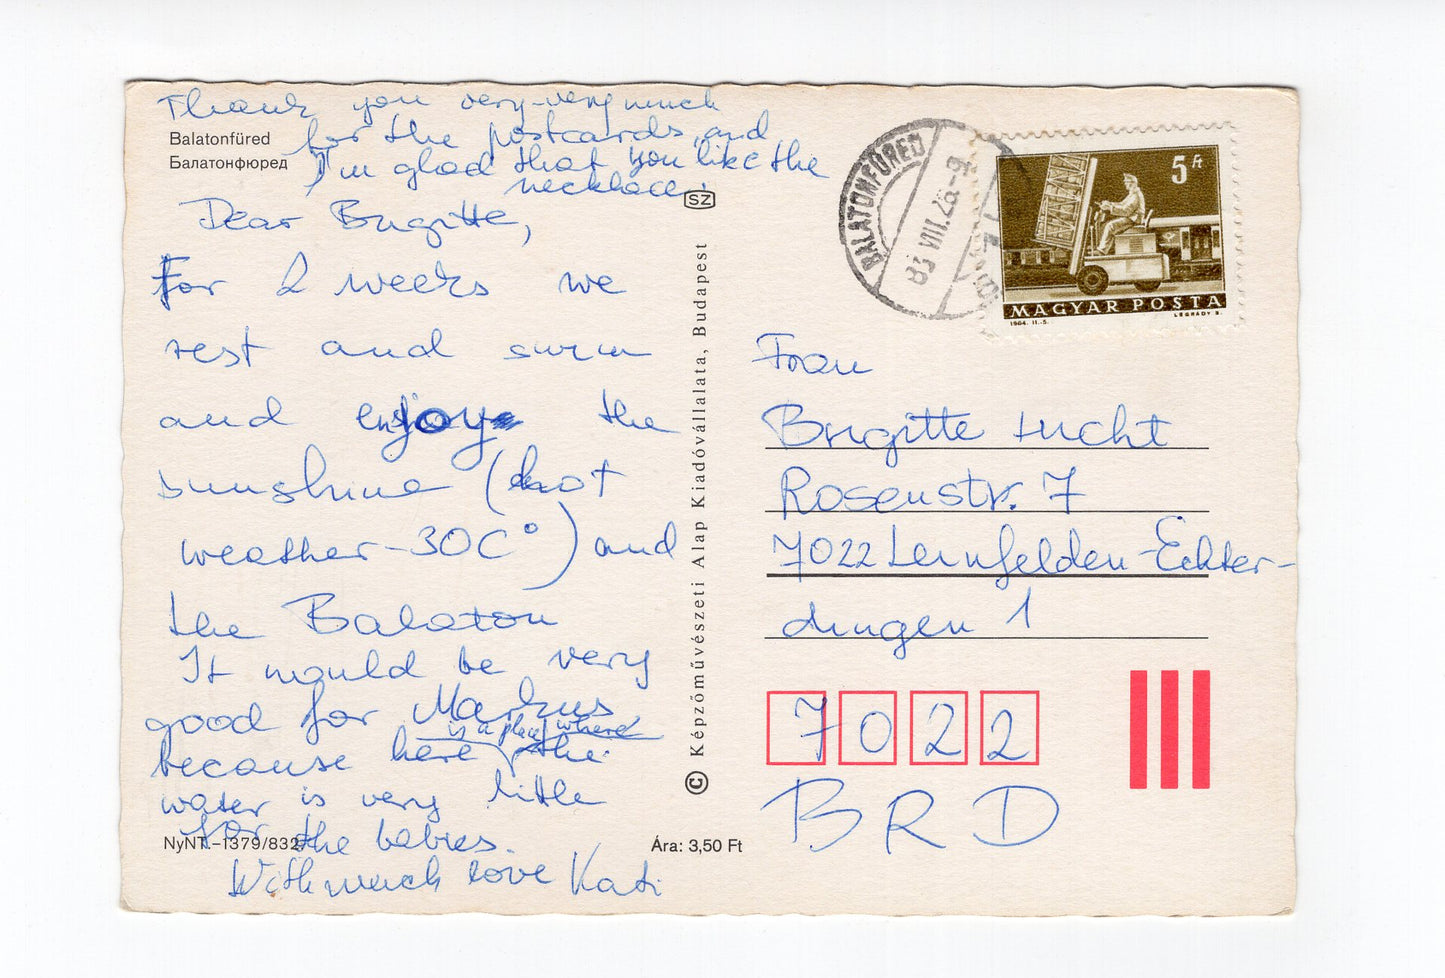 Thank you very-very much
for the postcards, and
I'm glad that you like the
necklace.
Balatonfüred
Балатонфюред
Dear Brigitte,
For 2 weeks we
rest and swim
and enjoy the
sunshine (hot
weather -30C°) and
the Balaton
It would be very
good for Markus
because here is a place where the
water is very little
for the babies.
With much love Kati
NyNT.–1379/832
Ára: 3,50 Ft
SZ
© Képzőművészeti Alap Kiadóvállalata, Budapest
BALATONFÜRED
83 VIII.26.-9
5 Ft
MAGYAR POSTA
1964. II.-5.
LÉGRÁDY S.
Frau
Brigitte Lucht
Rosenstr. 7
7022 Leinfelden-Echter-
dingen 1
7022
BRD